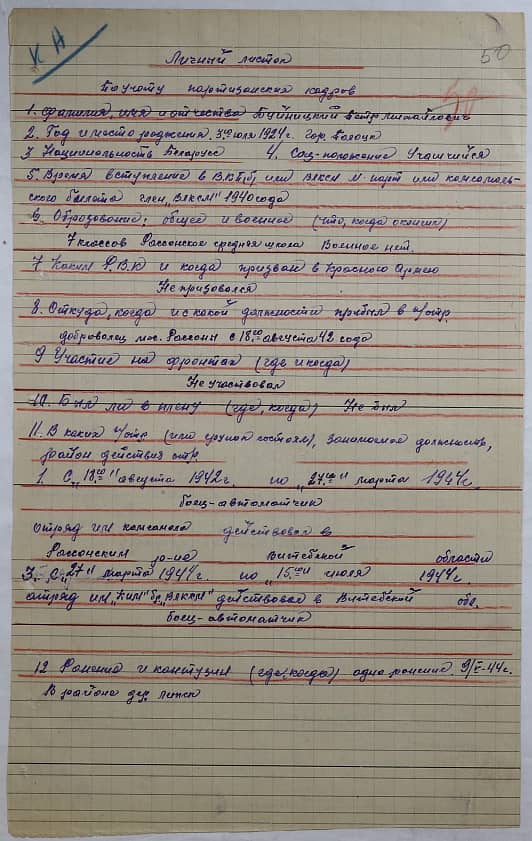 К А
50
Личный листок
По учоту партизанских кадров
50
1. Фамилия, имя и отчество Буйницкий Петр Михайлович
2. Год и место рождения. 3го июля 1924 г. гор. Полоцк
3 Национальность Беларусс 4. Соц-положение Учащийся
5 Время вступление в В.К.П.(б) или ВЛКСМ № парт или комсомоль-
ского билета член "ВЛКСМ" 1940 года
6 Оброзование: общее и военное (что, когда окончил)
7 классов Россонское средняя школа Военное нет.
7 Каким Р.В.К и когда призван в Красною Армею
Не призовался
8. Откуда, когда и с какой должности прибыл в п/отр.
доброволец мос. Россоны с 18го августа 42 года
9 Участие на фронтах (где и когда)
Не участвовал
10. Был ли в плену (где, когда) Не был
11. В каких п/отр (или групах состоял), занимаемое должность,
район действия отр.
1. С "18го" августа 1942 г. по "27го" марта 1944 г.
боец-автоматчик
отряд им комсамола действовал в
Россонским р-на Витебской области
3. С "27" марта 1944 г. по "15го" июля 1944 г.
отряд им "Ким" бр. "ВЛКСМ" действовал в Витебской обл.
боец-автоматчик
12 Ранения и контузии (где, когда) одно ронение 9/V-44 г.
В районе дер.